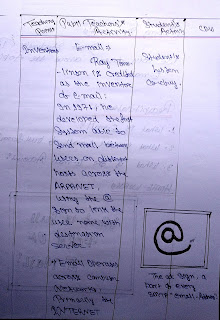 Teaching Points
Pupil Teacher's Activity
Student's Activity
CBW
Inventors
E-mail :-
Ray Tom-
-linson is credited
as the inventor
of E.mail:
In 1971, he
developed the first
System able to
Send mail between
users on different
hosts across the
ARPANET.
using the @
Sign to link the
user name with
destination
server.
* E-mail operates
across computer
Networks
Primarily the
INTERNET
Students
listen
Carefully.
@
The at sign, a
Part of every
SMTP email Address